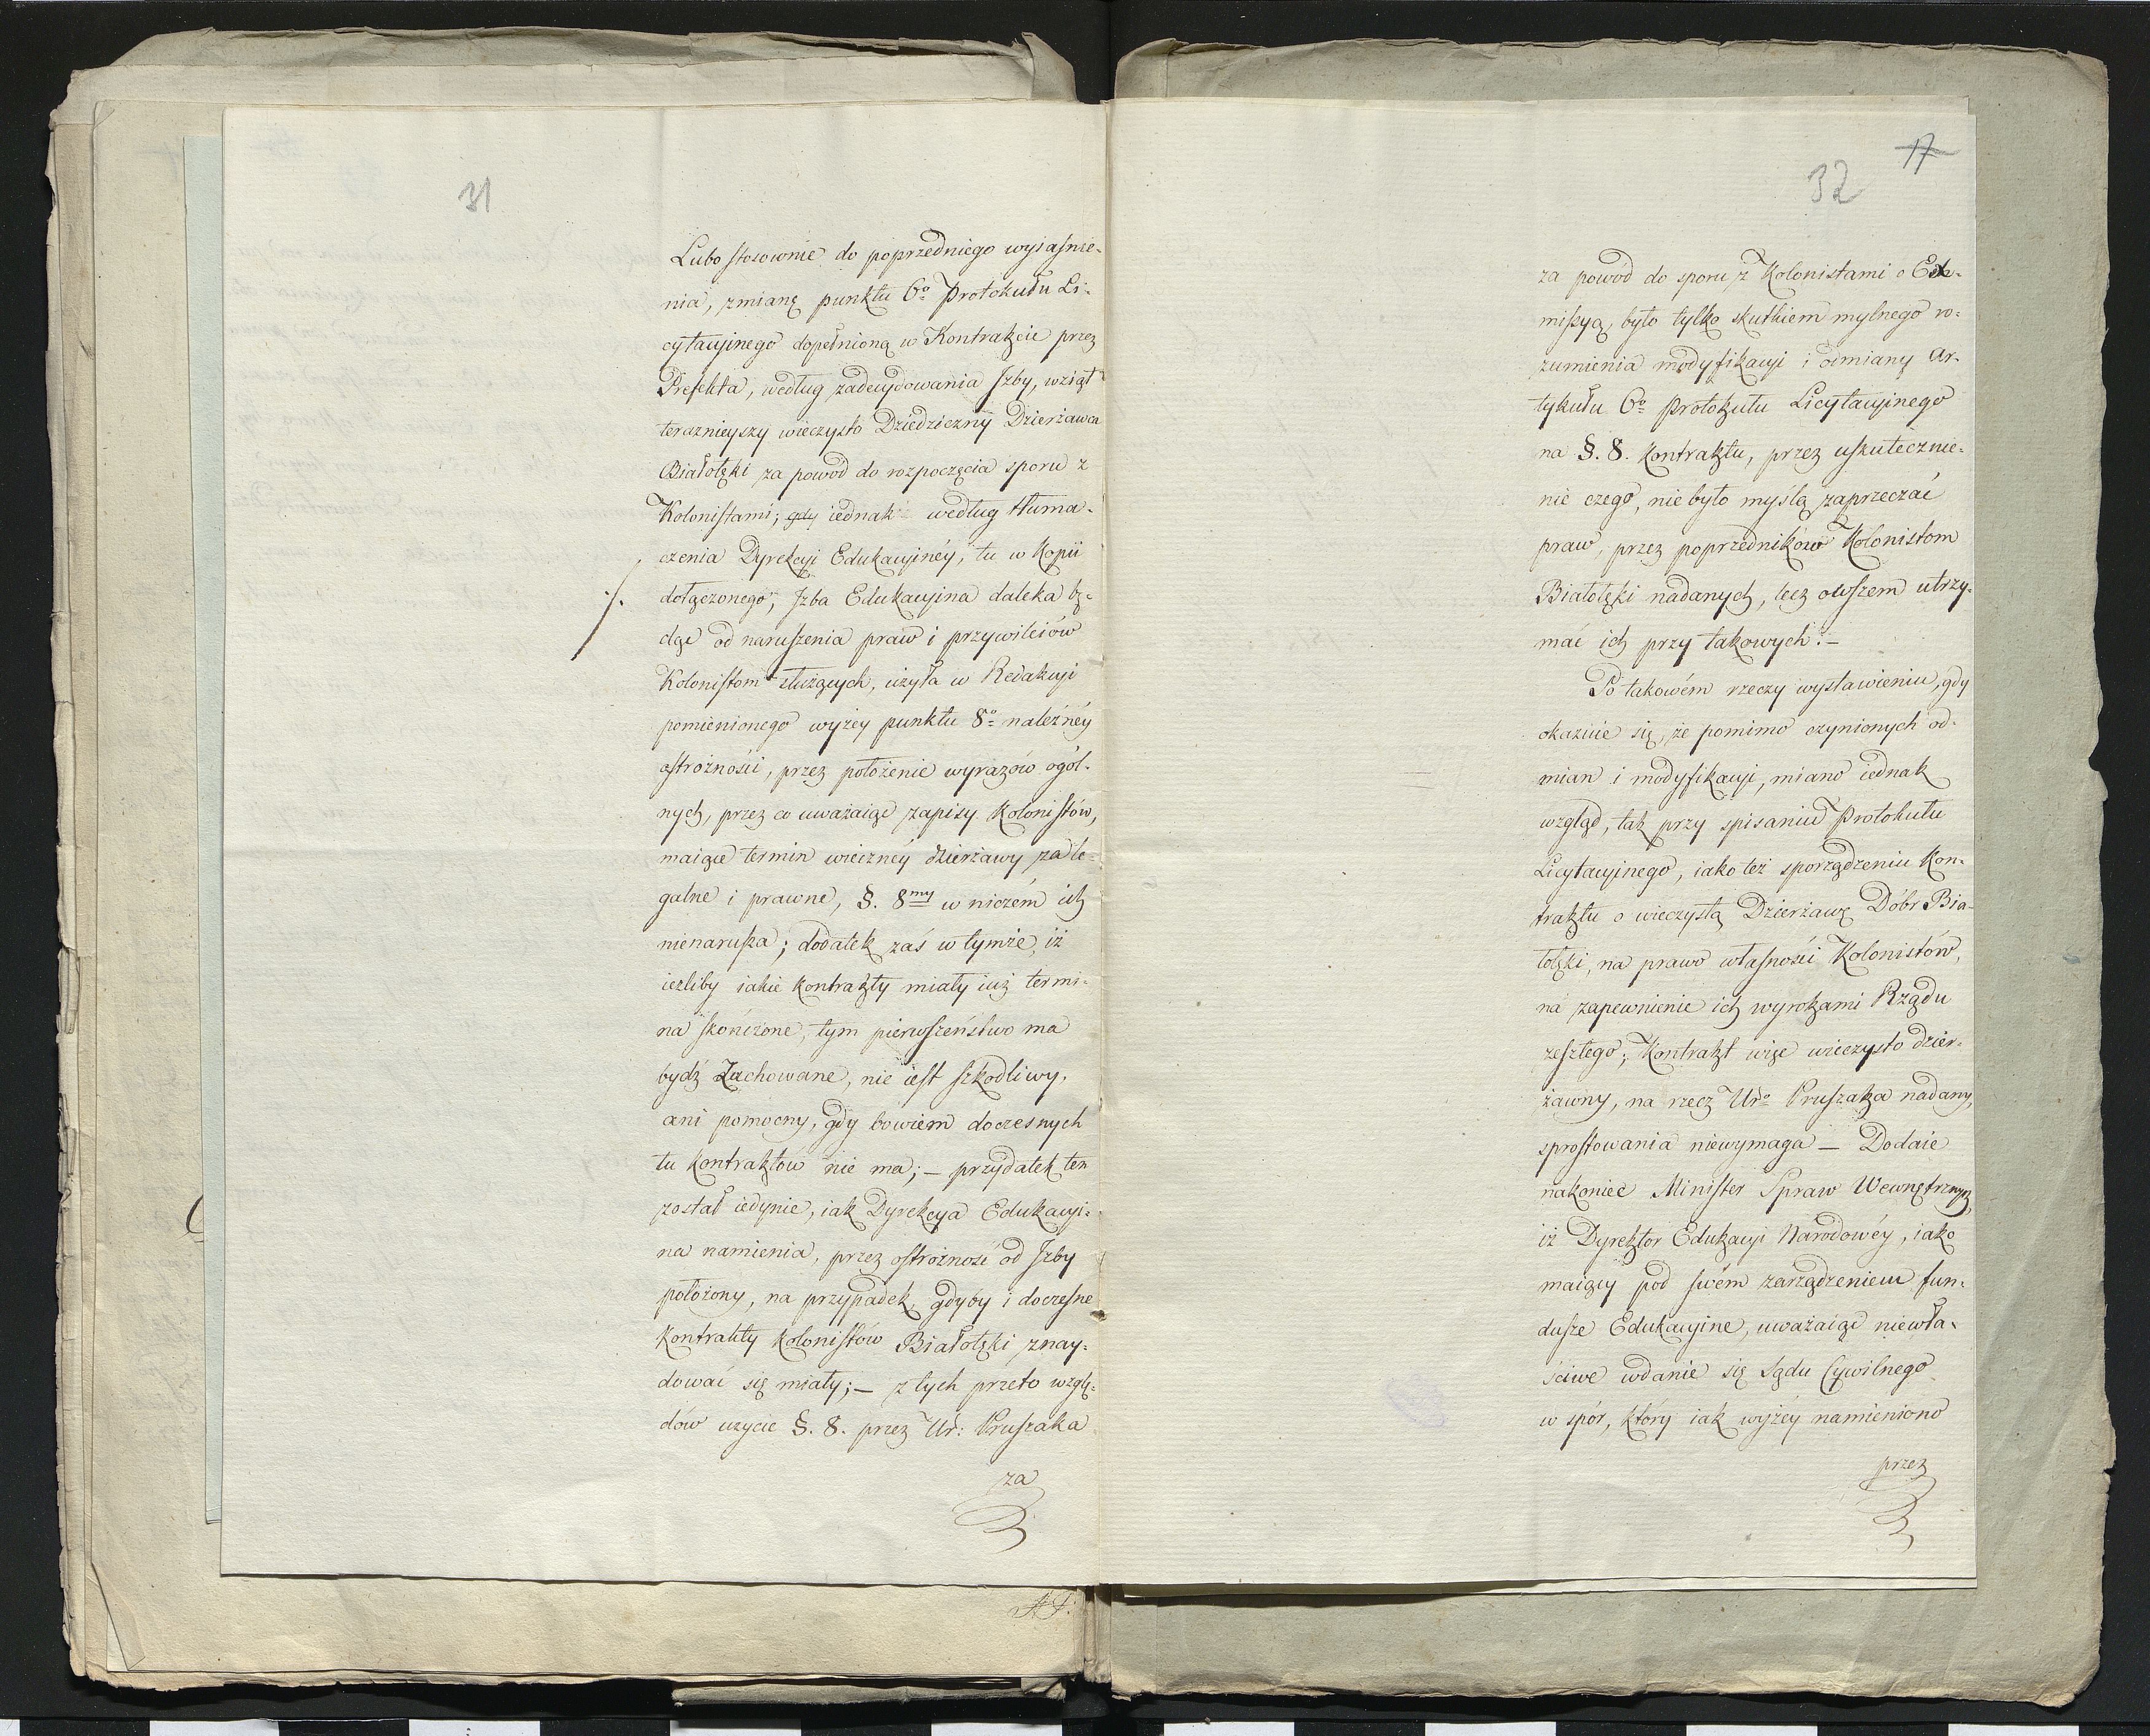 31
Lubo stosownie do poprzedniego wyiaśnie-
nia, zmianę punktu 6o Protokułu Li-
cytacyinego dopełnioną w Kontrakcie przez
Prefekta, według zadecydowania Izby, wziął
teraznieyszy wieczysto Dziedziczny Dzierżawca
Białołęki za powód do rozpoczęcia sporu z
Kolonistami; gdy iednak według tłuma-
czenia Dyrekcyi Edukacyinéy, tu w Kopii
./.
dołączonego, Izba Edukacyina daleka bę-
dąc od naruszenia praw i przywileiów
Kolonistom służących, użyła w Redakcyi
pomienionego wyżey punktu 8o należnéy
ostrożności, przez położenie wyrazów ogól-
nych, przez co uważaiąc zapisy Kolonistów,
maiące termin wiecznéy dzierżawy za le-
galne i prawne, §. 8my w niczém ich
nienarusza; dodatek zaś w tymże, iż
ieżliby iakie kontrakty miały iuż termi-
na skończone, tym pierwszeństwo ma
bydź Zachowane, nie iest szkodliwy,
ani pomocny, gdy bowiem doczesnych
tu kontraktów nie ma; – przydatek ten
został iedynie, iak Dyrekcya Edukacyi-
na namienia, przez ostrożność od Izby
położony, na przypadek, gdyby i doczesne
kontrakty kolonistów Białołęki znay-
dować się miały; – z tych przeto wzglę-
dów użycie §. 8. przez Ur: Pruszaka
za
17
32
za powód do sporu z Kolonistami o Ex-
missyą, było tylko skutkiem mylnego ro-
zumienia modyfikacyi i odmiany Ar-
tykułu 6o Protokułu Licytacyinego
na §. 8. kontraktu, przez uskutecznie-
nie czego, nie było myślą zaprzeczać
praw, przez poprzedników Kolonistom
Białołęki nadanych, lecz owszem utrzy-
mać ich przy takowych. –
Po takowém rzeczy wystawieniu, gdy
okazuie się, że pomimo czynionych od-
mian i modyfikacyi, miano iednak
wzgląd, tak przy spisaniu Protokułu
Licytacyinego, iako też sporządzeniu Kon-
traktu o wieczystą Dzierżawę Dóbr Bia-
łołęki, na prawo własności Kolonistów,
na zapewnienie ich wyrokami Rządu
zeszłego; Kontrakt więc wieczysto dzier-
żawny, na rzecz Uro Pruszaka nadany,
sprostowania niewymaga – Dodaie
nakoniec Minister Spraw Wewnętrznych,
iż Dyrektor Edukacyi Narodowéy, iako
maiący pod swém zarządzeniem fun-
dusze Edukacyine, uważaiąc niewła-
ściwe wdanie się Sądu Cywilnego
w spór, który iak wyżey namieniono
przez